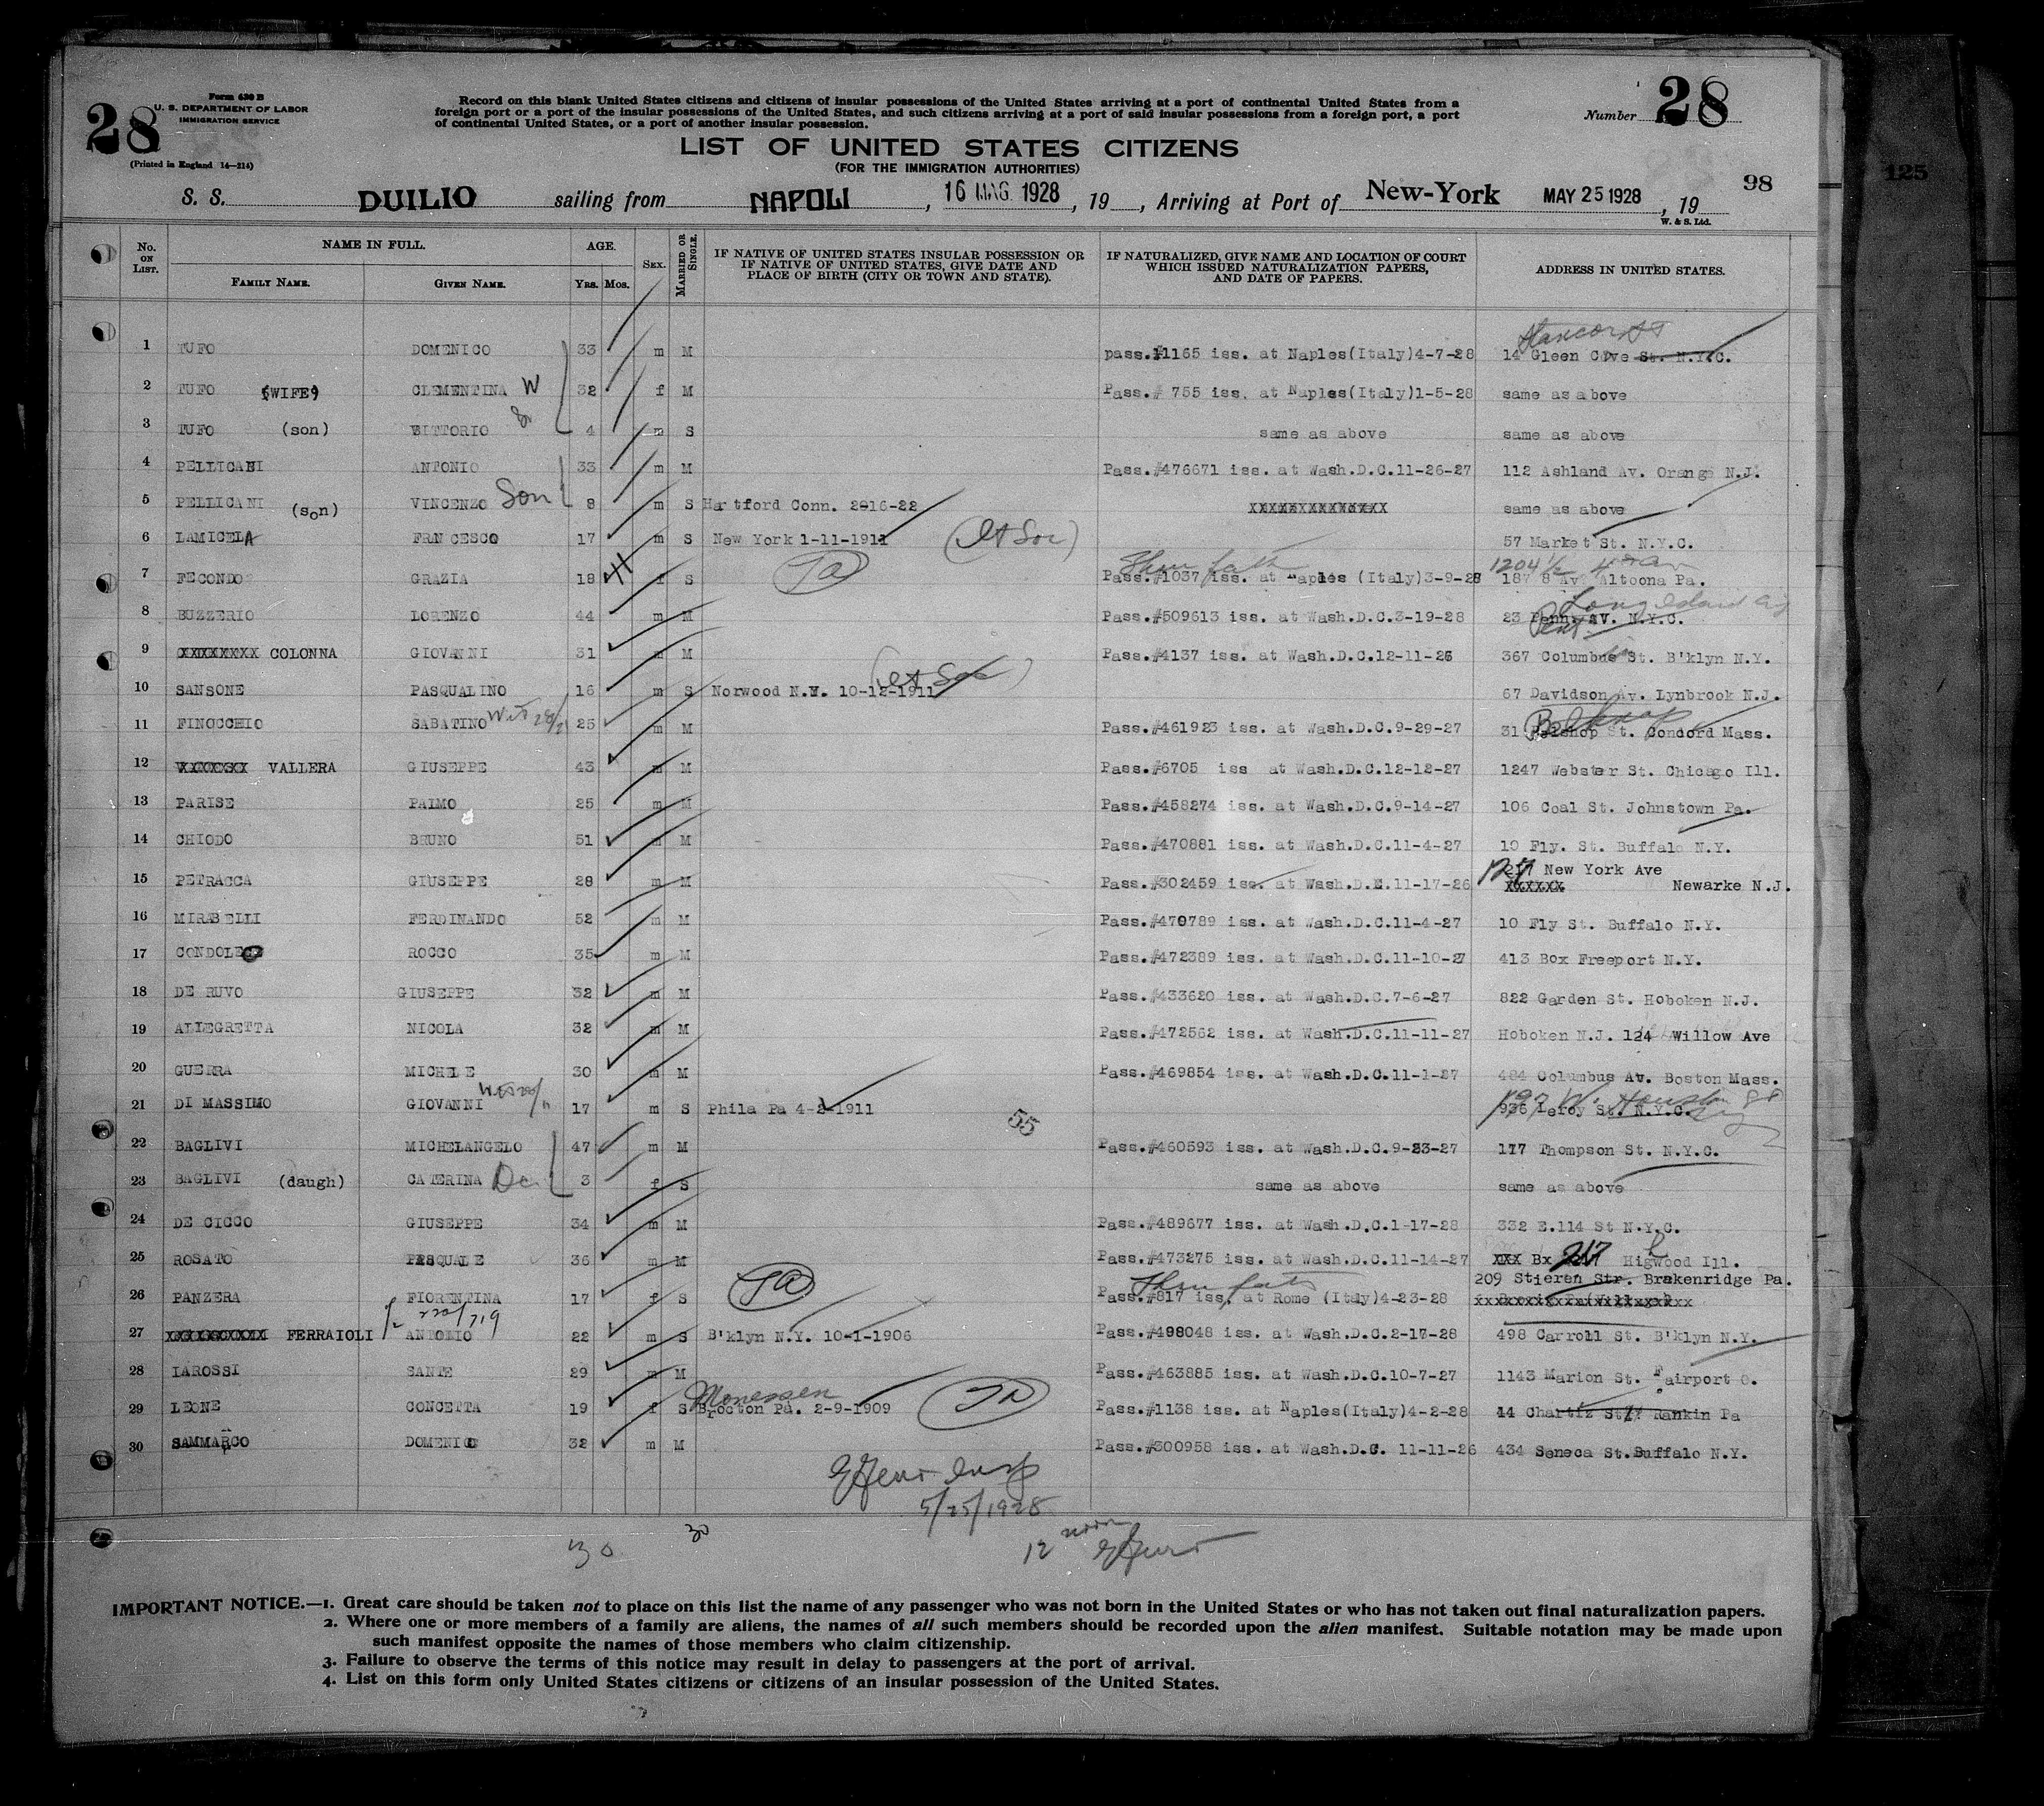 28
Form 630 B
U. S. DEPARTMENT OF LABOR
IMMIGRATION SERVICE
(Printed in England 14—214)
Record on this blank United States citizens and citizens of insular possessions of the United States arriving at a port of continental United States from a
foreign port or a port of the insular possessions of the United States, and such citizens arriving at a port of said insular possessions from a foreign port, a port
of continental United States, or a port of another insular possession.
Number 28
LIST OF UNITED STATES CITIZENS
(FOR THE IMMIGRATION AUTHORITIES)
98
125
S. S. DUILIO sailing from NAPOLI, 16 MAG. 1928, 19 , Arriving at Port of New-York MAY 25 1928, 19
W. & S. Ltd.
No. ON LIST.
NAME IN FULL.
FAMILY NAME. GIVEN NAME.
AGE.
YRS. MOS.
SEX.
MARRIED OR SINGLE.
IF NATIVE OF UNITED STATES INSULAR POSSESSION OR
IF NATIVE OF UNITED STATES, GIVE DATE AND
PLACE OF BIRTH (CITY OR TOWN AND STATE).
IF NATURALIZED, GIVE NAME AND LOCATION OF COURT
WHICH ISSUED NATURALIZATION PAPERS,
AND DATE OF PAPERS.
ADDRESS IN UNITED STATES.
1 TUFO DOMENICO 33 m M pass.#1165 iss. at Naples(Italy)4-7-28 14 Gleen Cove St. N.Y.C.
2 TUFO (WIFE) CLEMENTINA W 32 f M Pass.# 755 iss. at Naples(Italy)1-5-28 same as above
3 TUFO (son) VITTORIO 4 m S same as above same as above
4 PELLICANI ANTONIO 33 m M Pass.#476671 iss. at Wash.D.C.11-26-27 112 Ashland Av. Orange N.J.
5 PELLICANI (son) VINCENZO Son 8 m S Hartford Conn. 2-16-22 XXXXXXXXXXXXXX same as above
6 LAMICELA FRNCESCO 17 m S New York 1-11-1911 (It Soc) 57 Market St. N.Y.C.
Thru fath 1204 1/2
7 FECONDO GRAZIA 18 f S Pass.#1037 iss. at Naples (Italy)3-9-28 187 8 Av. Altoona Pa.
Long Island City
8 BUZZERIO LORENZO 44 m M Pass.#509613 iss. at Wash.D.C.3-19-28 23 Penn. AV. N.Y.C.
9 XXXXXXXX COLONNA GIOVANNI 31 m M Pass.#4137 iss. at Wash.D.C.12-11-26 367 Columbus St. B'klyn N.Y.
(It Soc)
10 SANSONE PASQUALINO 16 m S Norwood N.Y. 10-12-1911 67 Davidson Av. Lynbrook N.J.
Belknap
11 FINOCCHIO SABATINO 25 m M Pass.#461923 iss. at Wash.D.C.9-29-27 31 Bishop St. Condord Mass.
12 XXXXXXX VALLERA GIUSEPPE 43 m M Pass.#6705 iss at Wash.D.C.12-12-27 1247 Webster St. Chicago Ill.
13 PARISE PAIMO 25 m M Pass.#458274 iss. at Wash.D.C.9-14-27 106 Coal St. Johnstown Pa.
14 CHIODO BRUNO 51 m M Pass.#470881 iss. at Wash.D.C.11-4-27 10 Fly. St. Buffalo N.Y.
217 New York Ave
15 PETRACCA GIUSEPPE 28 m M Pass.#302459 iss. at Wash.D.C.11-17-26 XXXXXX Newarke N.J.
16 MIRABELLI FERDINANDO 52 m M Pass.#470789 iss. at Wash.D.C.11-4-27 10 Fly St. Buffalo N.Y.
17 ROCCO 35 m M Pass.#472389 iss. at Wash.D.C.11-10-27 413 Box Freeport N.Y.
18 DE RUVO GIUSEPPE 32 m M Pass.#433620 iss. at Wash.D.C.7-6-27 822 Garden St. Hoboken N.J.
19 ALLEGRETTA NICOLA 32 m M Pass.#472562 iss. at Wash.D.C.11-11-27 Hoboken N.J. 124 Willow Ave
20 GUERRA MICHELE 30 m M Pass.#469854 iss. at Wash.D.C.11-1-27 484 Columbus Av. Boston Mass.
197 W. Houston St
21 DI MASSIMO GIOVANNI 17 m S Phila Pa 4-2-1911 936 Leroy St. N.Y.C.
55
22 BAGLIVI MICHELANGELO 47 m M Pass.#460593 iss. at Wash.D.C.9-23-27 177 Thompson St. N.Y.C.
23 BAGLIVI (daugh) CATERINA Da 3 f S same as above same as above
24 DE CICCO GIUSEPPE 34 m M Pass.#489677 iss. at Wash.D.C.1-17-28 332 E.114 St N.Y.C.
25 ROSATO PASQUALE 36 m M Pass.#473275 iss. at Wash.D.C.11-14-27 XXX Bx 217 Higwood Ill.
Thru fath 209 Stieren Str. Brakenridge Pa.
26 PANZERA FIORENTINA 17 f S Pass.#817 iss. at Rome (Italy)4-23-28 XXXXXXXXXXXXXXXXXXXX
27 XXXXXXXXXX FERRAIOLI ANTONIO 22 m S B'klyn N.Y. 10-1-1906 Pass.#498048 iss. at Wash.D.C.2-17-28 498 Carroll St. B'klyn N.Y.
28 IAROSSI SANTE 29 m M Pass.#463885 iss. at Wash.D.C.10-7-27 1143 Marion St. Fairport O.
Monessen
29 LEONE CONCETTA 19 f S Brocton Pa. 2-9-1909 Pass.#1138 iss. at Naples(Italy)4-2-28 44 Chartiz St. Rankin Pa
30 SAMMARCO DOMENICO 32 m M Pass.#300958 iss. at Wash.D.C. 11-11-26 434 Seneca St.Buffalo N.Y.
5/25/1928
30
30
12 noon
IMPORTANT NOTICE.—1. Great care should be taken not to place on this list the name of any passenger who was not born in the United States or who has not taken out final naturalization papers.
2. Where one or more members of a family are aliens, the names of all such members should be recorded upon the alien manifest. Suitable notation may be made upon
such manifest opposite the names of those members who claim citizenship.
3. Failure to observe the terms of this notice may result in delay to passengers at the port of arrival.
4. List on this form only United States citizens or citizens of an insular possession of the United States.